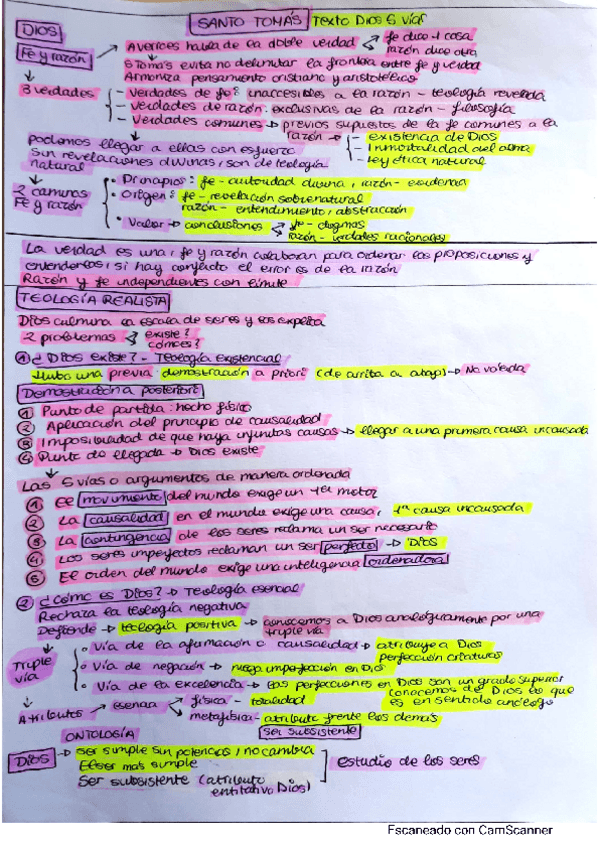 SANTO TOMÁS Texto Dios 5 vías
DIOS
Fe y razón → Averroes habla de la doble verdad fe dice 1 cosa
razón dice otra
S Tomás evita no delimitar la frontera entre fe y verdad
Armoniza pensamiento cristiano y aristotélico
3 verdades - Verdades de fe: inaccesibles a la razón - teología revelada
- Verdades de razón: exclusivas de la razón - filosofía
- Verdades comunes → previos supuestos de la fe comunes a la
razón → - existencia de Dios
podemos llegar a ellas con esfuerzo - Inmortalidad del alma
sin revelaciones divinas, son de teología - Ley ética natural
natural
2 caminos • Principios: fe - autoridad divina, razón - evidencia
Fe y razón • Origen: fe - revelación sobrenatural
razón - entendimiento, abstracción
• Valor → conclusiones fe - dogmas
razón - verdades racionales
La verdad es una, fe y razón colaboran para ordenar las proposiciones y
entenderlos, si hay conflicto el error es de la razón
Razón y fe independientes con límite
TEOLOGÍA REALISTA
Dios culmina la escala de seres y los explica
2 problemas existe?
cómo es?
① ¿Dios existe? - Teología existencial
Hubo una previa demostración a priori (de arriba a abajo) → No valida
Demostración a posteriori
① Punto de partida: hecho físico
② Aplicación del principio de causalidad
③ Imposibilidad de que haya infinitas causas → llegar a una primera causa incausada
④ Punto de llegada → Dios existe
Las 5 vías o argumentos de manera ordenada
① El movimiento del mundo exige un 1er motor
② La causalidad en el mundo exige una causa, 1ª causa incausada
③ La contingencia de los seres reclama un ser necesario
④ Los seres imperfectos reclaman un ser perfecto → DIOS
⑤ El orden del mundo exige una inteligencia ordenadora
② ¿Cómo es Dios? → Teología esencial
Rechaza la teología negativa
Defiende → teología positiva → conocemos a Dios analógicamente por una
triple vía
Triple vía • Vía de la afirmación o causalidad → atribuye a Dios
perfección criaturas
• Vía de negación → niega imperfección en Dios
• Vía de la excelencia → las perfecciones en Dios son un grado superior
conocemos de Dios lo que
es en sentido análogo
Atributos → esencia física - totalidad
metafísica - atributo frente los demás
ONTOLOGÍA ser subsistente
DIOS → Ser simple sin potencias, no cambia
El ser más simple
Ser subsistente (atributo
entitativo Dios)
estudio de los seres
Escaneado con CamScanner